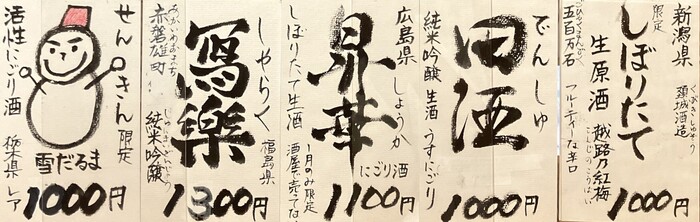 新潟県 頚城酒造
限定
しぼりたて
生原酒 越路乃紅梅
五百万石 フルーティーな辛口
1000円
でんしゅ
田酒
純米吟醸 生酒 うすにごり
1000円
広島県 しょうか
昇華
にごり酒
しぼりたて生酒
1100円
1月のみ限定
しゃらく
福島県
寫樂
赤磐雄町 純米吟醸
1300円
せんきん 限定
雪だるま
活性にごり酒 栃木県 レア
1000円